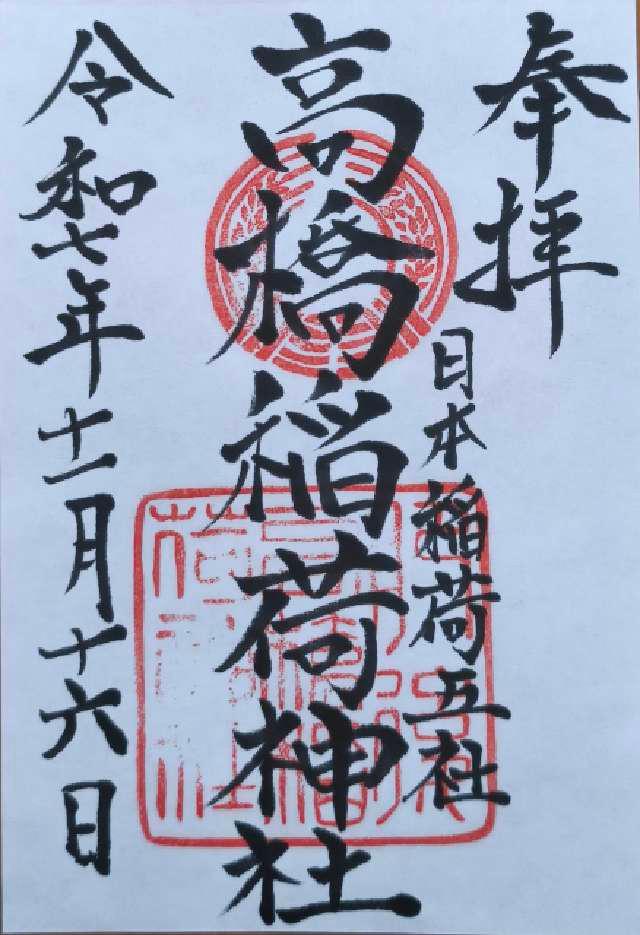 奉拝
日本稲荷五社
高橋稲荷神社
令和七年十一月十六日